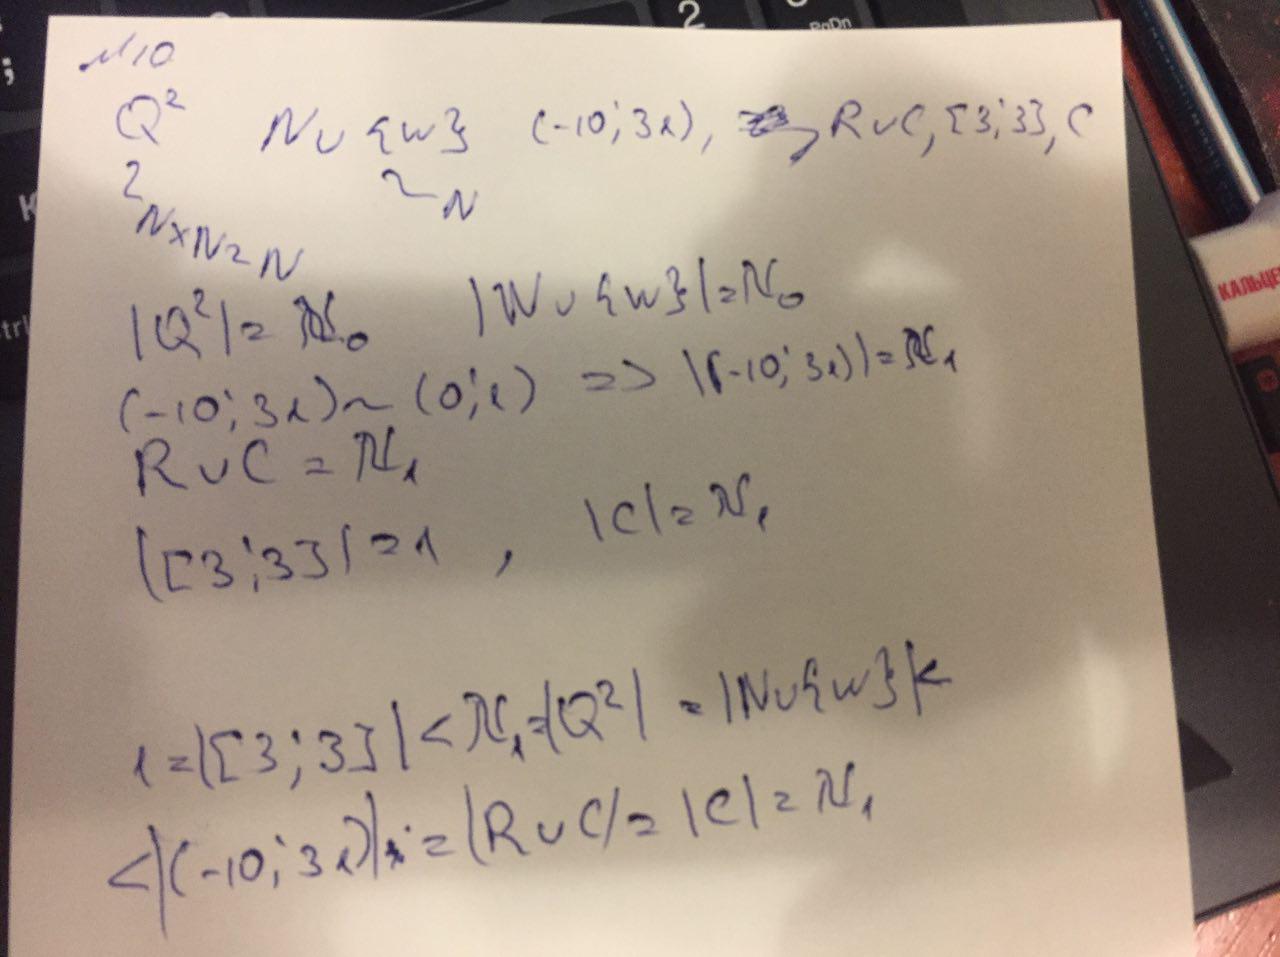 №10
Q² N∪{w} (-10; 31), R∪C, [3;3], C
~ ~N
N×N~N
|Q²| = ℵ₀ |N∪{w}| = ℵ₀
(-10; 31) ~ (0; 1) => |(-10; 31)| = ℵ₁
R∪C = ℵ₁
|[3;3]| = 1, |C| = ℵ₁
1 = |[3;3]| < ℵ₁ = |Q²| = |N∪{w}| <
< |(-10; 31)| = |R∪C| = |C| = ℵ₁
2
PgDn
;
K
trl
КАЛЬЦЕ